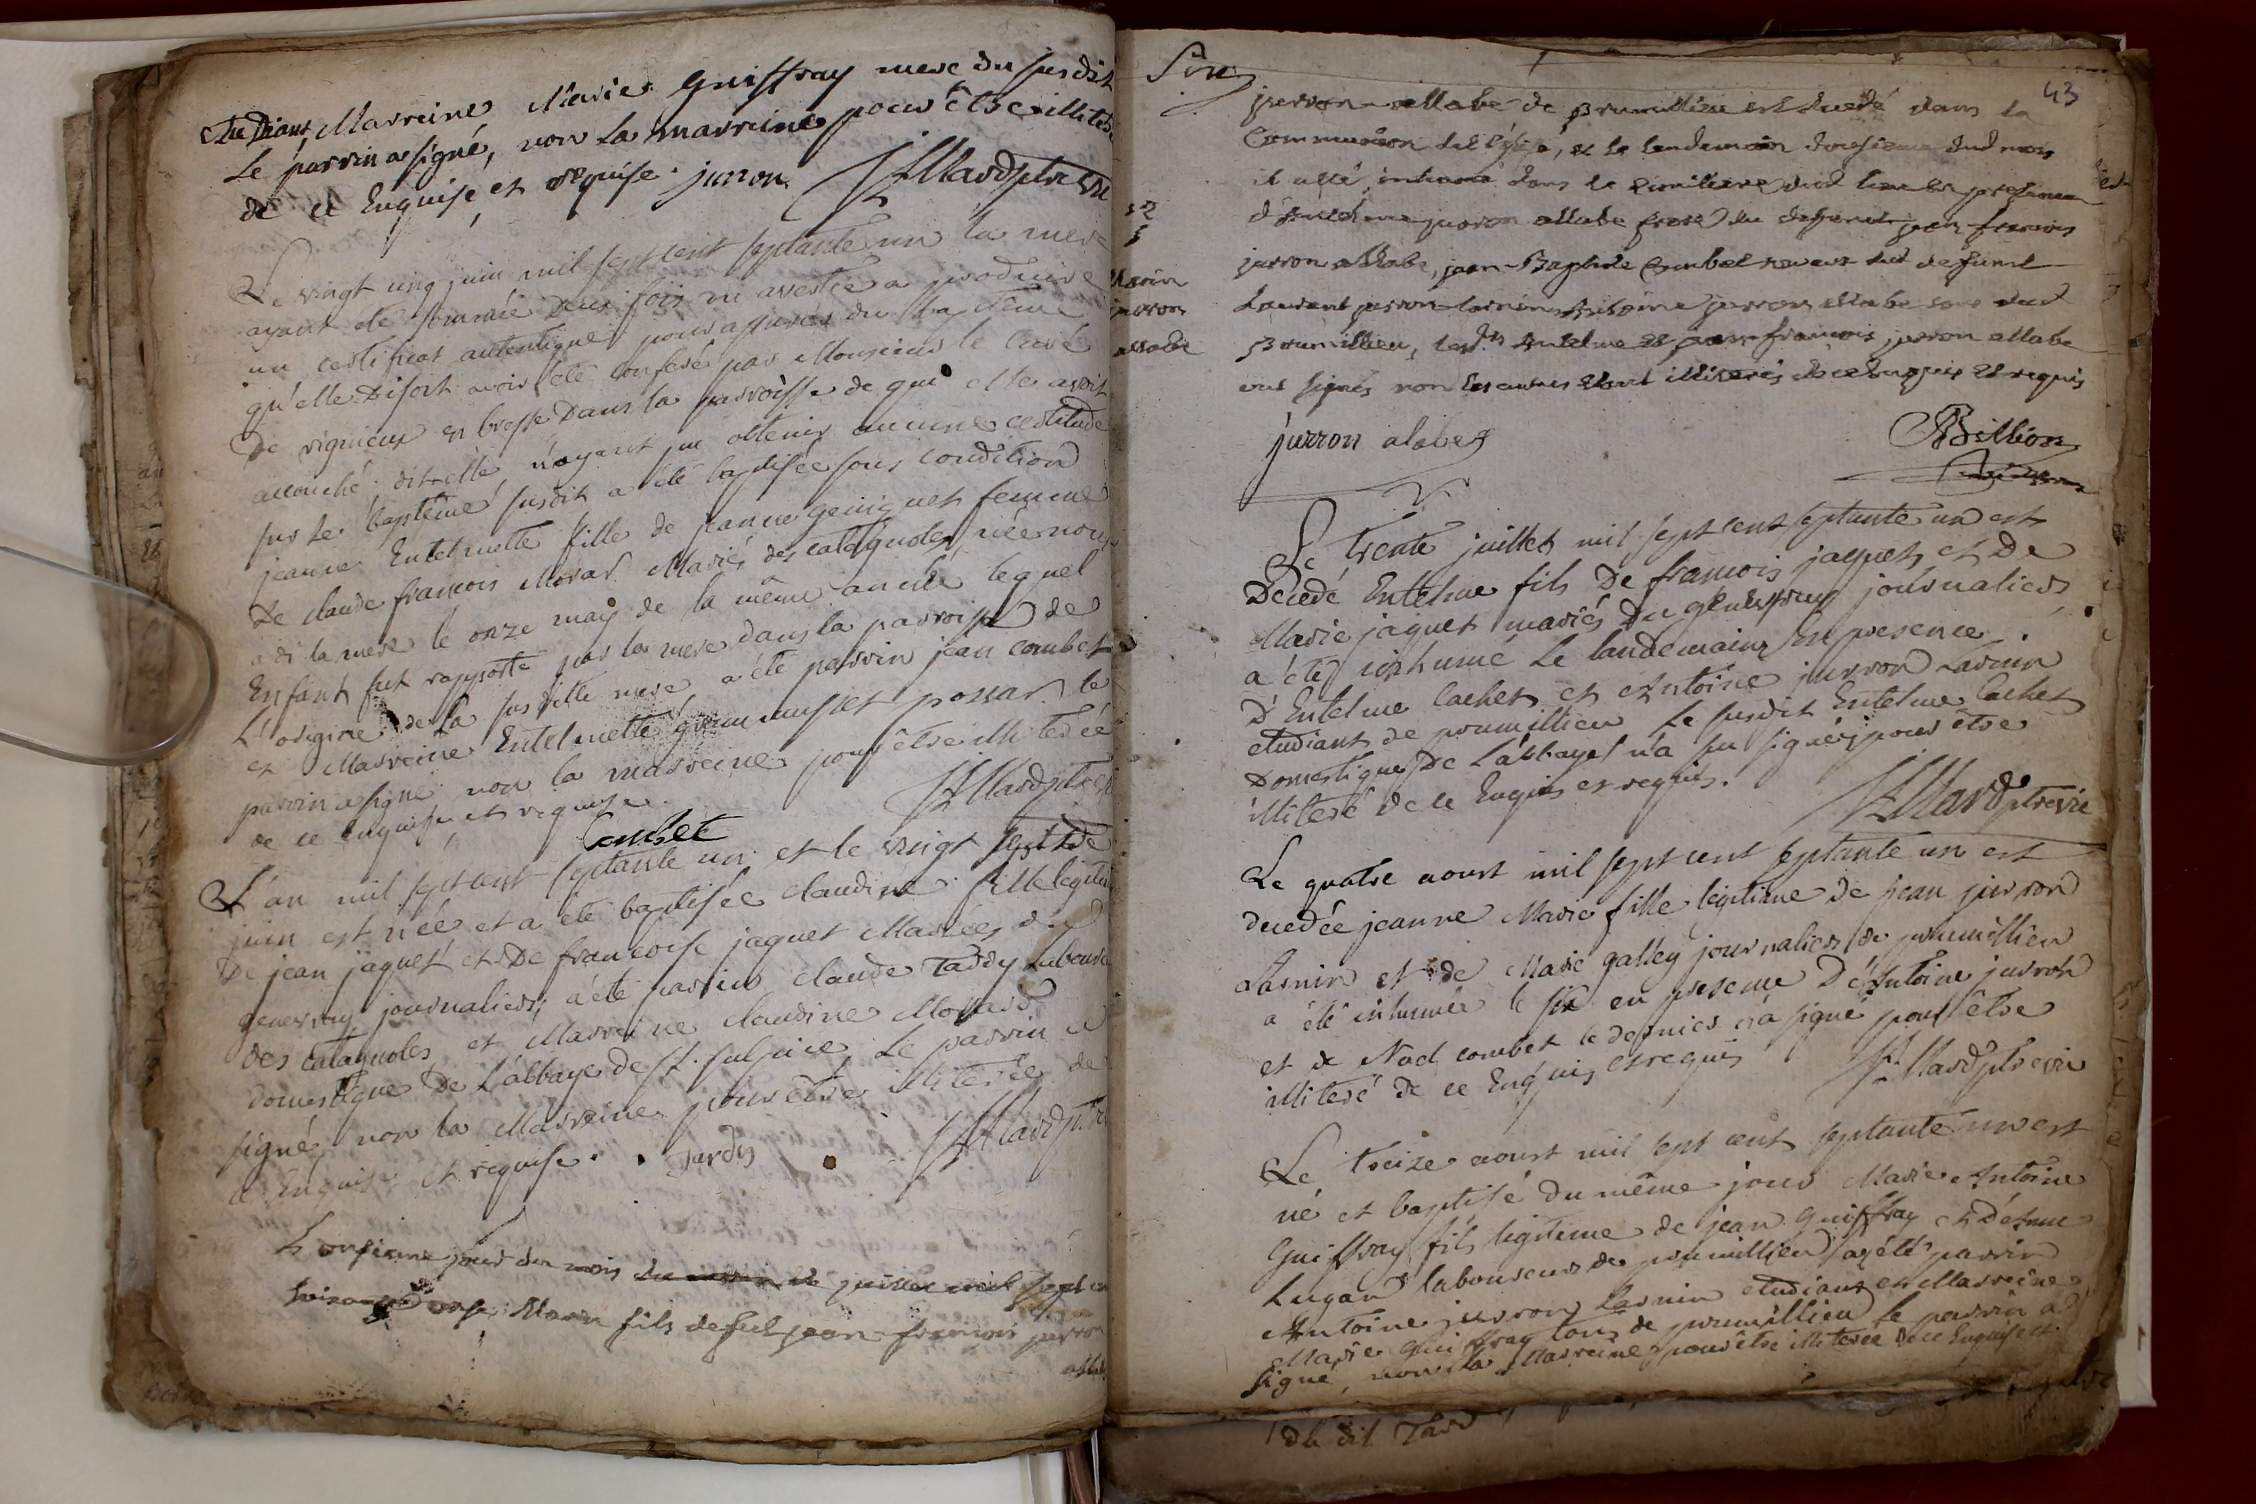 étudiant, Marreine Marie Guiffray mere du susdit
Le parrin a signé, non la marreine pour être illiterée
de ce Enquise et requise. jurron Mard ptre vic
Le vingt cinq juin mil sept cent septante un la mere
ayant été sommée deux fois ni avertie a produire
un certificat autentique pour assurer du baptême
qu'elle Disoit avoir été conferé par Monsieur le Curé
De vignieux en bresse Dans la parroisse de qui elle avoit
accouché dit elle, n'ayant pu obtenir aucune certitude
sur le baptême susdit a été baptisée sous condition
jeanne Entelmette fille de jeanne geniquet femme
De claude francois Morar Mariés des catagnoles née nous
a dit la mere le onze may de la même année lequel
Enfant fut rapporté par la mere dans la parroisse de
L'origine de la susditte mere a été parrin jean combet
et Marreine Entelmette possar le
parrin a signé non la marreine pour être illiterée
de ce enquise et requise. Mard ptre vic
Combet
L'an mil sept cent septante un et le vingt sept de
juin est née et a été baptisée claudine fille legitime
De jean jaquet et De francoise jaquet Mariées du
genevray journaliers, a été parrin claude Tardy laboureur
des catagnoles et Marreine claudine Mollard
domestique De L'abbaye de St. Sulpice, Le parrin a
signé, non la Marreine pour être illiterée de
ce Enquise et requise. Tardy Mard ptre
L'onsieme jour du mois de juillet mil sept cent
soixante onze Marin fils de feu jean francois jurron
allabe
43
jurron allabe de prumillieu est decedé dans la
Communion de l'église, et le lendemain dousieme dud mois
il a été inhumé dans le cimitiere dud lieu en presence
d'Entelme jurron allabe frere du defunt jean francois
jurron allabe, jean-Baptiste Combet neveux dud defunt
Laurent jurron-larnin Antoine jurron allabe tous dud
prumillieu, lesd.ts Antelme et jean francois jurron allabe
ont signés non les autres etant illiterés de ce enquis et requis
jurron alabe Billion
marin
jurron
allabe
Le trente juillet mil sept cent septante un est
Decedé Entelme fils De francois jaquet et De
Marie jaquet mariés Du genevray journaliers
a été inhumé Le landemain En presence
D'Entelme Cachet et Antoine jurron Larnin
etudiant de prumillieu Le susdit Entelme Cachet
Domestique De L'abbaye n'a su signé, pour être
illiteré de ce Enquis et requis. Mard ptre vic
Le quatre aoust mil sept cent septante un est
decedée jeanne Marie fille legitime de jean jurron
Larnin et de Marie galley journalier de prumillieu
a été inhumée le six en presence D'Antoine jurron
et de Noel combet le dernier n'a signé pour être
illiteré de ce Enquis et requis Mard ptre vic
Le treize aoust mil sept cent septante un est
né et baptisé du même jour Marie Antoine
Guiffray fils legitime de jean Guiffray et d'Anne
Lugan laboureur de prumillieu a été parrin
Antoine jurron Larnin etudiant et Marreine
Marie Guiffray tous de prumillieu le parrin a
signé, non la Marreine pour être illiterée de ce Enquise et